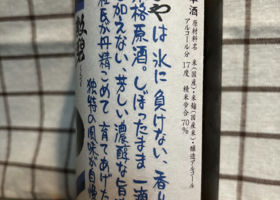 酒 原材料名 米(国産)・米麹(国産米)・醸造アルコール
アルコール分 17度 精米歩合 70%
やは氷に負けない、香り
格原酒。しぼったまま一滴
加えない、芳しい濃醇な旨
氏が丹精こめて育てあげた
独特の風味が自慢